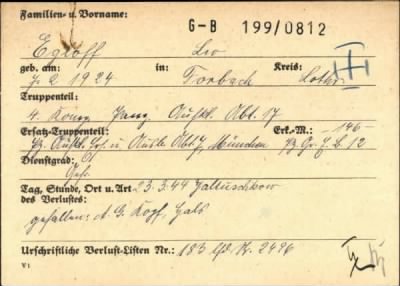 Familien- u. Vorname: G-B 199/0812
Egloff Leo
geb. am: 7.2.1924 in: Forbach Kreis: Lothr.
Truppenteil:
4. Komp. Panz. Aufkl. Abt. 17
Ersatz-Truppenteil: Erk.-M.: -146-
Pz. Aufkl. Ers. u. Ausb. Abt. 7, München
Dienstgrad:
Gefr.
Tag, Stunde, Ort u. Art 23.3.44
des Verlustes:
gefallen: A. G. Kopf, Hals
Urschriftliche Verlust-Listen Nr.: 183 lfd. Nr. 2496
V1